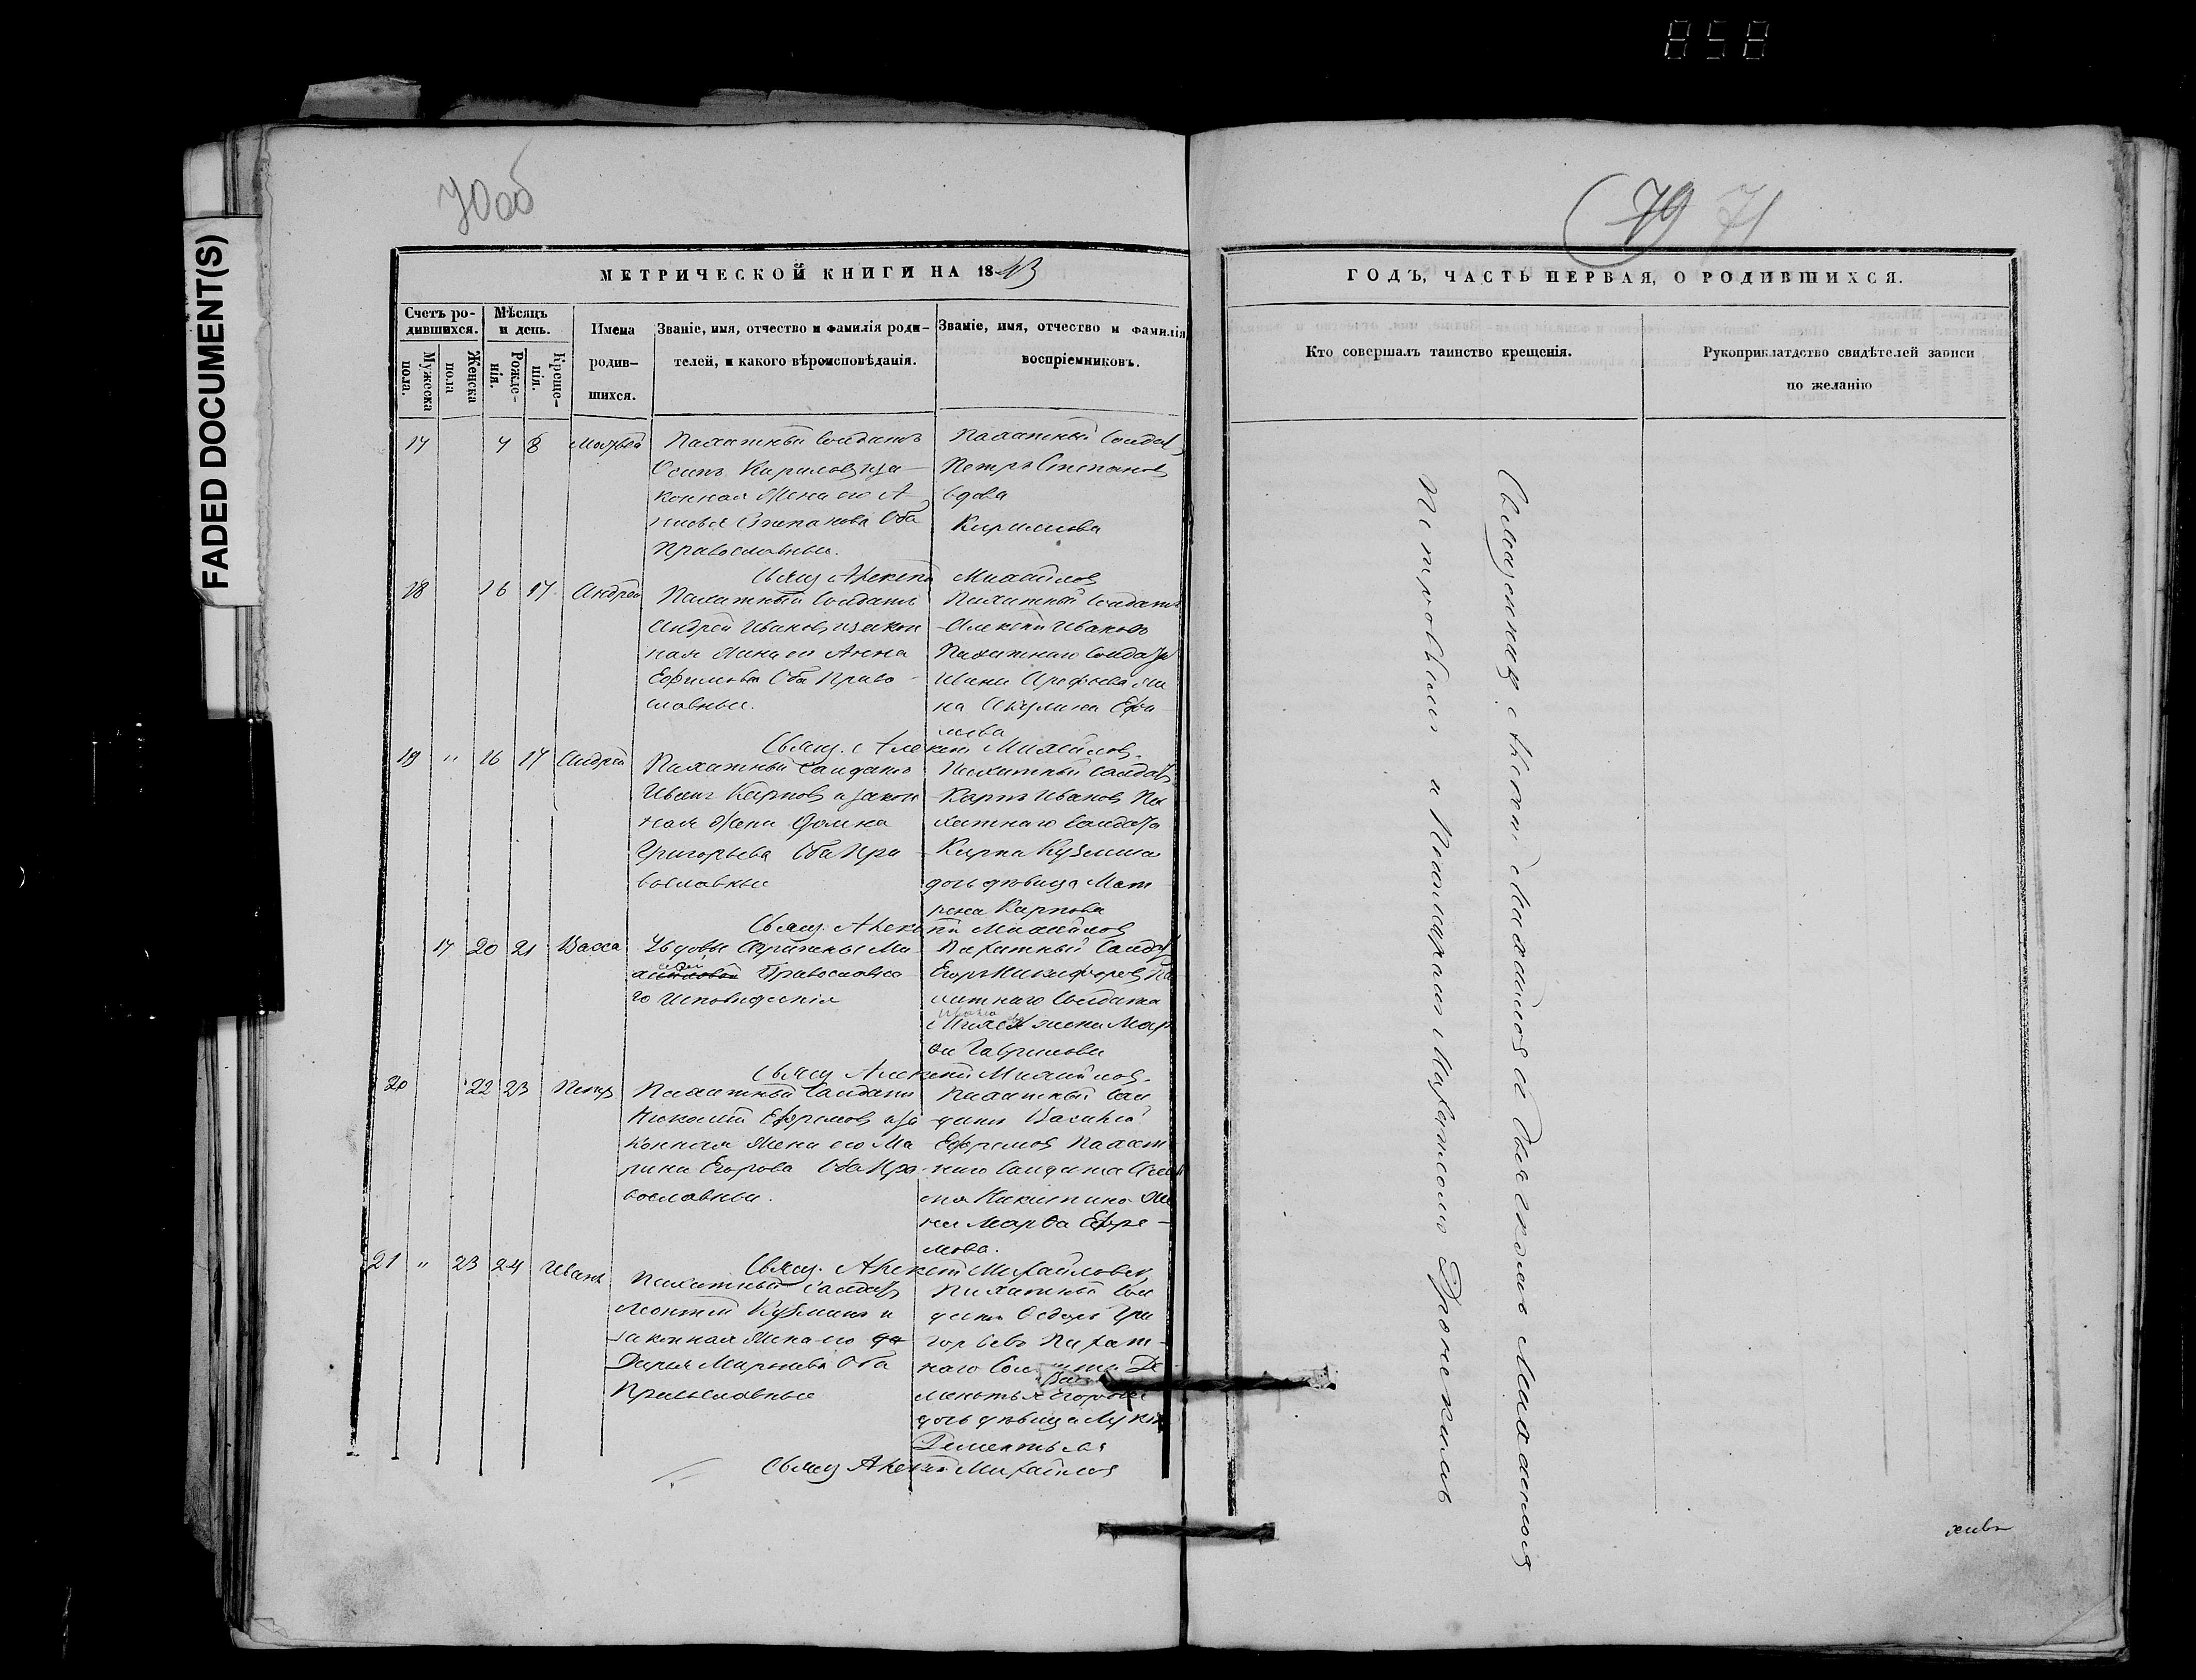 858
FADED DOCUMENT(S)
70об
МЕТРИЧЕСКОЙ КНИГИ НА 1843
Счетъ ро-
дившихся.
Мужеска
пола.
Женска
пола
Мѣсяцъ
и день.
Рожде-
нія.
Креще-
нія.
Имена
родив-
шихся.
Званіе, имя, отчество и фамилія роди-
телей, и какого вѣроисповѣданія.
Званіе, имя, отчество и фамилія
воспріемниковъ.
17 7 8 Матвей
Пахатный Солдатъ
Осипъ Кириловъ и за
конная Жена его А
Степанова Оба
Православные.
Пахатный Солдатъ
Петръ Степановъ
вдова
Кирилова
Свящ Алексей Михайловъ
18 16 17 Андрей
Пахатный Солдатъ
Андрей Ивановъ и закон
ная Жена его Анна
Ефимова Оба Право
славные.
Пахатный Солдатъ
Алексей Ивановъ
Пахатнаго Солдата
Ивана Арефьева Же
на Акулина Ефи
мова
Свящ. Алексей Михайловъ.
19 " 16 17 Андрей
Пахатный Солдатъ
Иванъ Карповъ и закон
ная Жена Домна
Григорьева Оба Пра
вославные
Пахатный Солдатъ
Карпъ Ивановъ Па
хатнаго Солдата
Карпа Кузмина
дочь девица Мат
рена Карпова
Свящ. Алексей Михайловъ
17 20 21 Васса
У вдовы Ми
Православна
го Исповеденія
Пахатный Солдатъ
Егоръ Никифоровъ Па
хатнаго Солдата
жена Мар
фа Гаврилова
Свящ Алексей Михайловъ.
20 22 23 Петръ
Пахатный Солдатъ
Николай Ефремовъ и за
конная Жена его Ма
рина Егорова Оба Пра
вославные.
Пахатный Сол
датъ Василий
Ефремовъ Пахат
наго Солдата
Никитина Же
на Марфа Ефре-
мова.
Свящ. Алексей Михайловъ
21 " 23 24 Иванъ
Пахатный Солдатъ
Леонтий Кузминъ и
законная Жена его
Дарья Маркова Оба
Православные
Пахатный Сол
датъ Федоръ Гри
горьевъ Пахат-
наго Солдата Де
ментья Егорова
дочь девица
Дементьева
Свящ Алексей Михайловъ
79 71
ГОДЪ, ЧАСТЬ ПЕРВАЯ, О РОДИВШИХСЯ.
Кто совершалъ таинство крещенія.
Рукоприкладство свидѣтелей записи
по желанію
Священникъ Алексей Михайловъ съ Дьякономъ Михаиломъ
Петровымъ и Пономаремъ